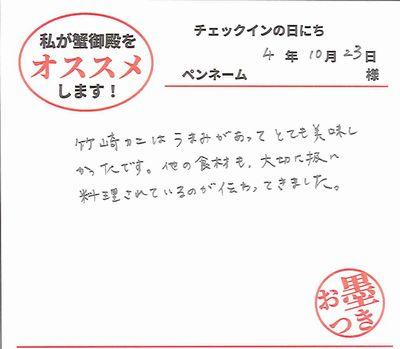 私が蟹御殿を
オススメ
します！
チェックインの日にち
4 年 10 月 23 日
ペンネーム 様
竹崎カニはうまみがあってとても美味し
かったです。他の食材も、大切に扱い
料理されているのが伝わってきました。
お墨
つき